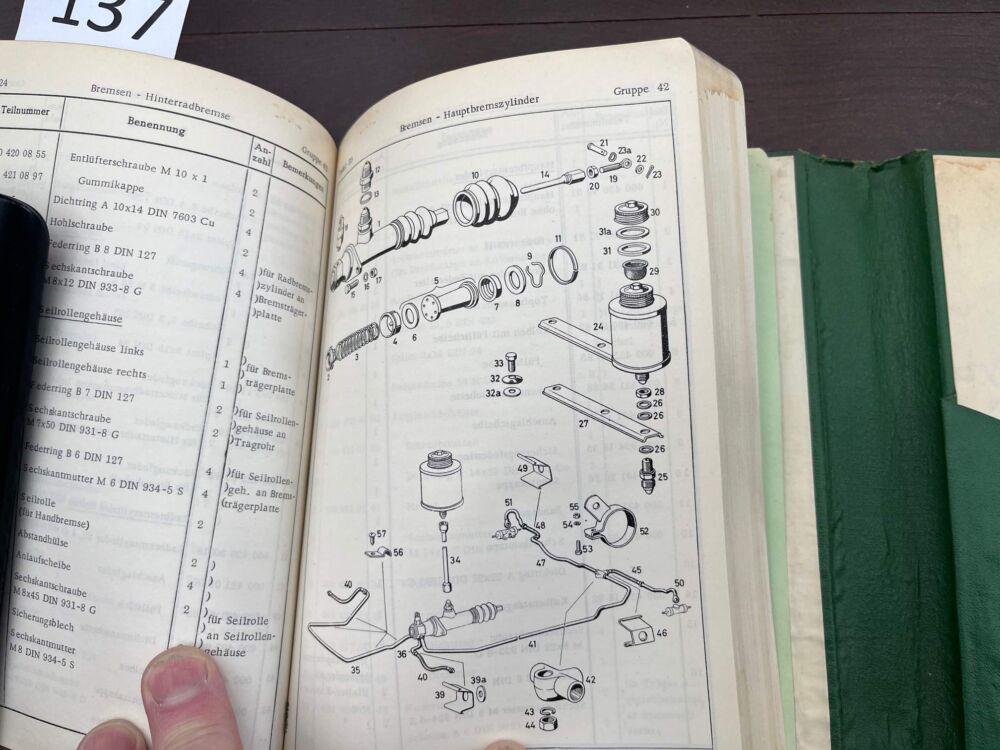 137
24
Bremsen - Hinterradbremse
Teilnummer
Benennung
An-
zahl
Bemerkungen
0 420 08 55
Entlüfterschraube M 10 x 1
2
421 08 97
Gummikappe
2
Dichtring A 10x14 DIN 7603 Cu
4
Hohlschraube
2
Federring B 8 DIN 127
4
Sechskantschraube
M8x12 DIN 933-8 G
4
)für Radbrems-
)zylinder an
)Bremsträger-
)platte
Seilrollengehäuse
Seilrollengehäuse links
1
Seilrollengehäuse rechts
1
)für Brems-
)trägerplatte
Federring B 7 DIN 127
2
Sechskantschraube
M7x50 DIN 931-8 G
2
)für Seilrollen-
)gehäuse an
)Tragrohr
Federring B 6 DIN 127
4
Sechskantmutter M 6 DIN 934-5 S
4
)für Seilrollen-
)geh. an Brems-
(trägerplatte
Seilrolle
(für Handbremse)
2
Abstandhülse
2
)
Anlaufscheibe
4
)
Sechskantschraube
M8x45 DIN 931-8 G
2
)
Sicherungsblech
)für Seilrolle
)an Seilrollen-
)gehäuse
Sechskantmutter
M 8 DIN 934-5 S
Bremsen - Hauptbremszylinder
Gruppe 42
12
13
1
10
14
21
23a
22
23
20
19
30
31a
31
29
24
15
16
17
5
9
11
7
8
6
4
3
2
33
32
32a
28
26
26
27
26
25
49
51
48
55
54
52
53
57
56
34
47
45
50
40
46
36
41
35
40
39
39a
42
43
44